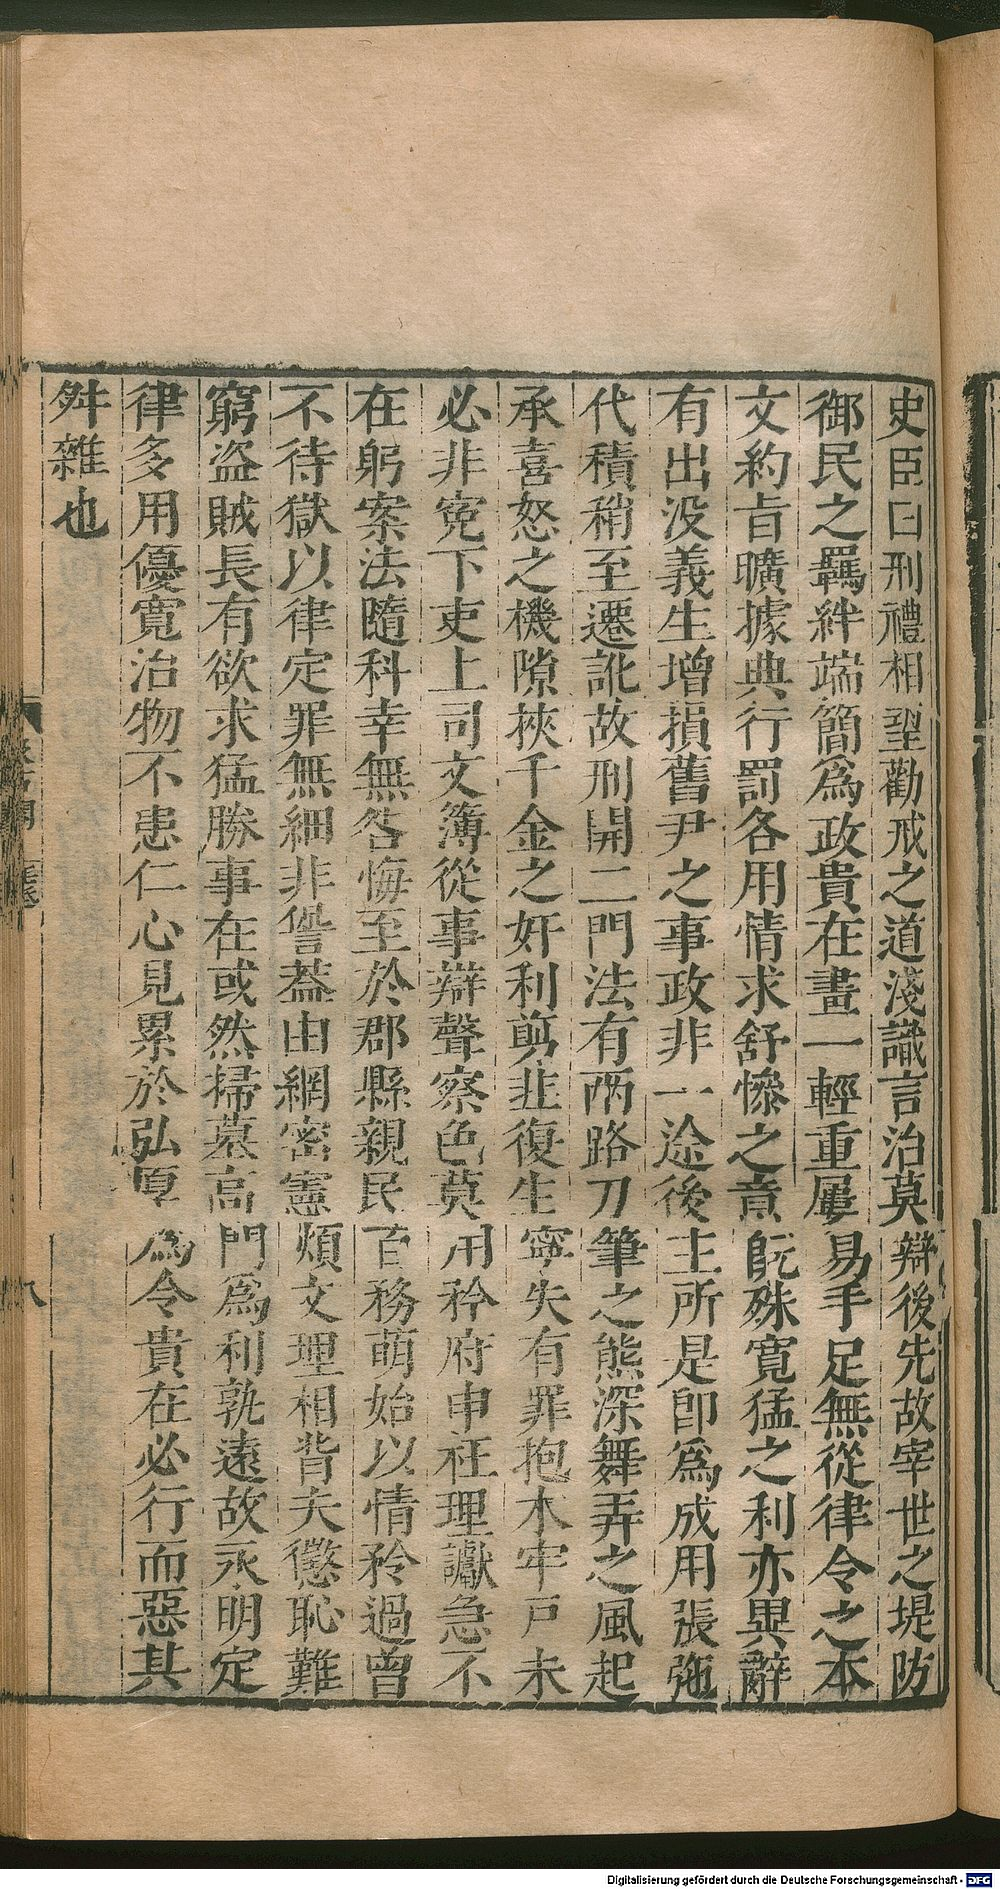 史臣曰刑禮相望勸戒之道淺識言治莫辯後先故宰世之堤防
御民之羈絆端簡為政貴在畫一輕重屢易手足無從律令之本
文約旨曠據典行罰各用情求舒慘之意旣殊寬猛之利亦異辭
有出沒義生增損舊尹之事政非一途後主所是卽為成用張弛
代積稍至遷訛故刑開二門法有兩路刀筆之態深舞弄之風起
承喜怒之機隙挾千金之奸利剪韭復生寧失有罪抱木牢戶未
必非寃下吏上司文簿從事辯聲察色莫用矜府申枉理讞急不
在躬案法隨科幸無咎悔至於郡縣親民百務萌始以情矜過曾
不待獄以律定罪無細非諐蓋由網密憲煩文理相背夫懲恥難
窮盜賊長有欲求猛勝事在或然掃墓高門為利孰遠故永明定
律多用優寬治物不患仁心見累於弘厚為令貴在必行而惡其
舛雜也
八
Digitalisierung gefördert durch die Deutsche Forschungsgemeinschaft - DFG